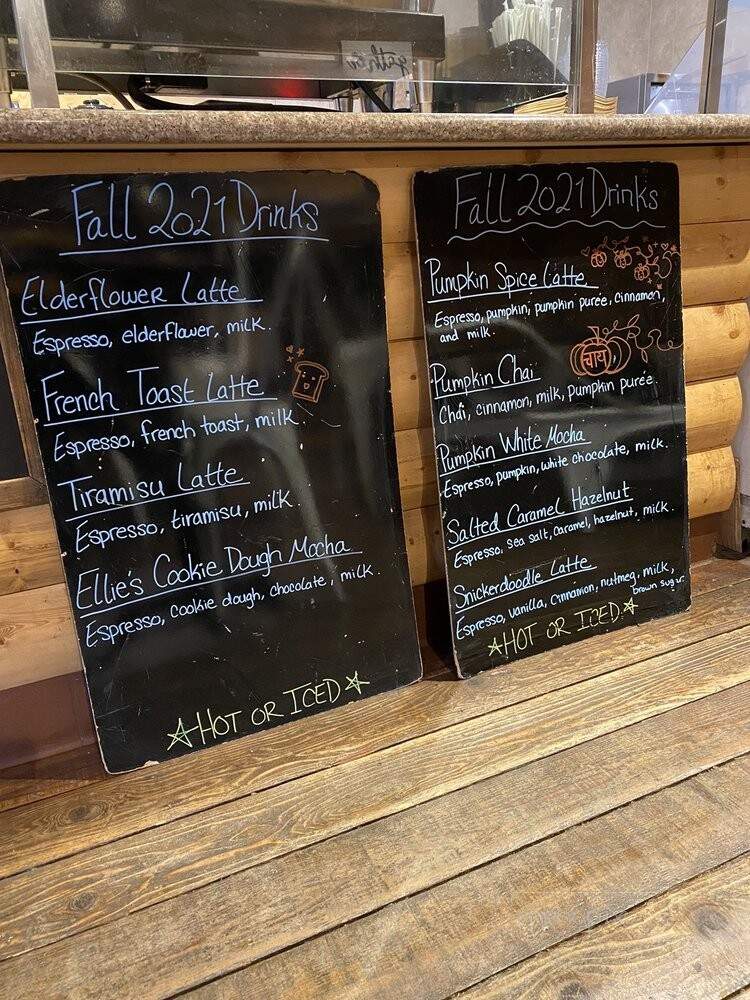 Fall 2021 Drinks
Elderflower Latte
Espresso, elderflower, milk.
French Toast Latte
Espresso, french toast, milk.
Tiramisu Latte
Espresso, tiramisu, milk.
Ellie's Cookie Dough Mocha
Espresso, cookie dough, chocolate, milk.
HOT OR ICED
Fall 2021 Drinks
Pumpkin Spice Latte
Espresso, pumpkin, pumpkin purée, cinnamon,
and milk.
चाय
Pumpkin Chai
Chai, cinnamon, milk, pumpkin purée.
Pumpkin White Mocha
Espresso, pumpkin, white chocolate, milk.
Salted Caramel Hazelnut
Espresso, sea salt, caramel, hazelnut, milk.
Snickerdoodle Latte
Espresso, vanilla, cinnamon, nutmeg, milk,
brown sugar.
HOT OR ICED